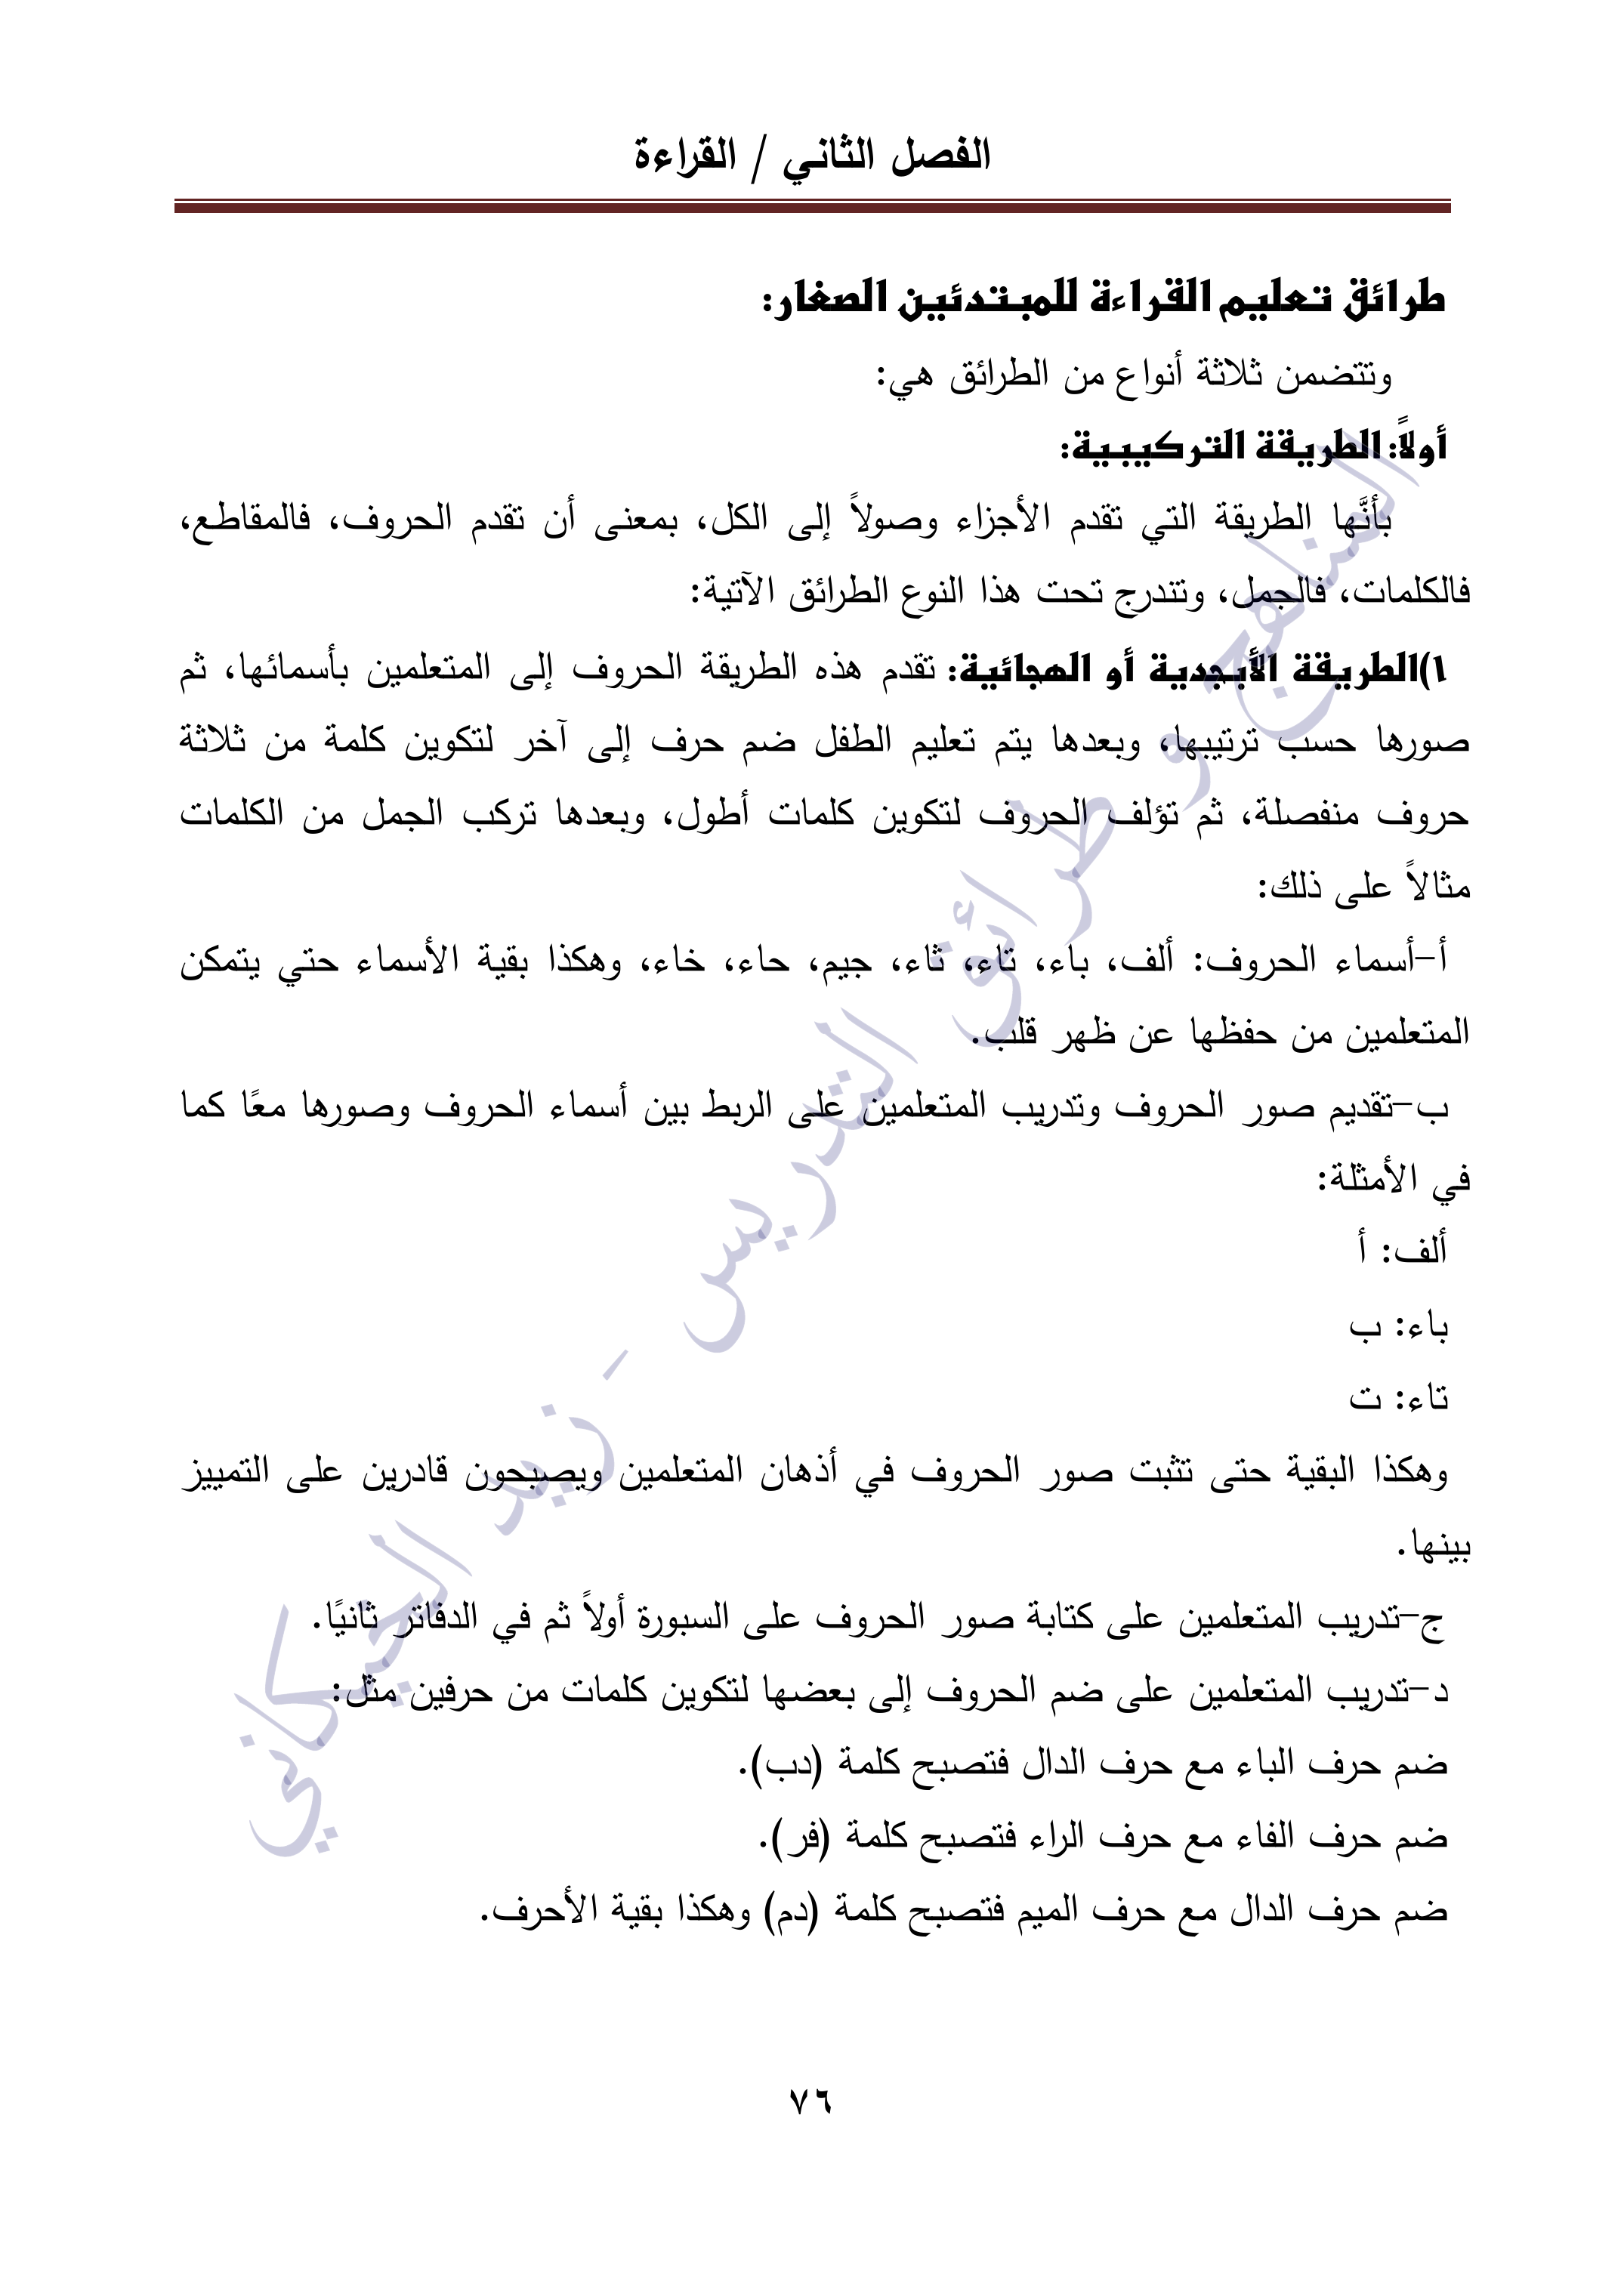 الفصل الثاني / القراءة
طرائق تعليم القراءة للمبتدئين الصغار:
وتتضمن ثلاثة أنواع من الطرائق هي:
أولاً: الطريقة التركيبية:
بأنَّها الطريقة التي تقدم الأجزاء وصولاً إلى الكل، بمعنى أن تقدم الحروف، فالمقاطع،
فالكلمات، فالجمل، وتندرج تحت هذا النوع الطرائق الآتية:
١)الطريقة الأبجدية أو الهجائية: تقدم هذه الطريقة الحروف إلى المتعلمين بأسمائها، ثم
صورها حسب ترتيبها، وبعدها يتم تعليم الطفل ضم حرف إلى آخر لتكوين كلمة من ثلاثة
حروف منفصلة، ثم تؤلف الحروف لتكوين كلمات أطول، وبعدها تركب الجمل من الكلمات
مثالاً على ذلك:
أ-أسماء الحروف: ألف، باء، تاء، ثاء، جيم، حاء، خاء، وهكذا بقية الأسماء حتي يتمكن
المتعلمين من حفظها عن ظهر قلب.
ب-تقديم صور الحروف وتدريب المتعلمين على الربط بين أسماء الحروف وصورها معًا كما
في الأمثلة:
ألف: أ
باء: ب
تاء: ت
وهكذا البقية حتى تثبت صور الحروف في أذهان المتعلمين ويصبحون قادرين على التمييز
بينها.
ج-تدريب المتعلمين على كتابة صور الحروف على السبورة أولاً ثم في الدفاتر ثانيًا.
د-تدريب المتعلمين على ضم الحروف إلى بعضها لتكوين كلمات من حرفين مثل:
ضم حرف الباء مع حرف الدال فتصبح كلمة (دب).
ضم حرف الفاء مع حرف الراء فتصبح كلمة (فر).
ضم حرف الدال مع حرف الميم فتصبح كلمة (دم) وهكذا بقية الأحرف.
٧٦
المناهج و طرائق التدريس - زيد الجيكاني